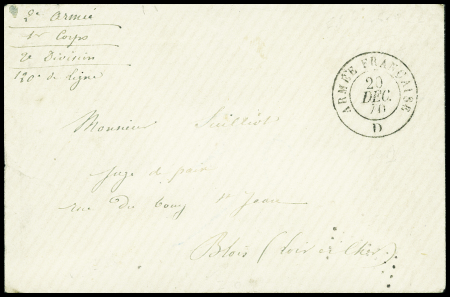 2e Armée
1er Corps
2e Division
120e de Ligne
ARMÉE FRANÇAISE
29
DEC.
70
D
Monsieur
Juge de paix
rue du bourg St Jean
Blois (Loir et Cher)